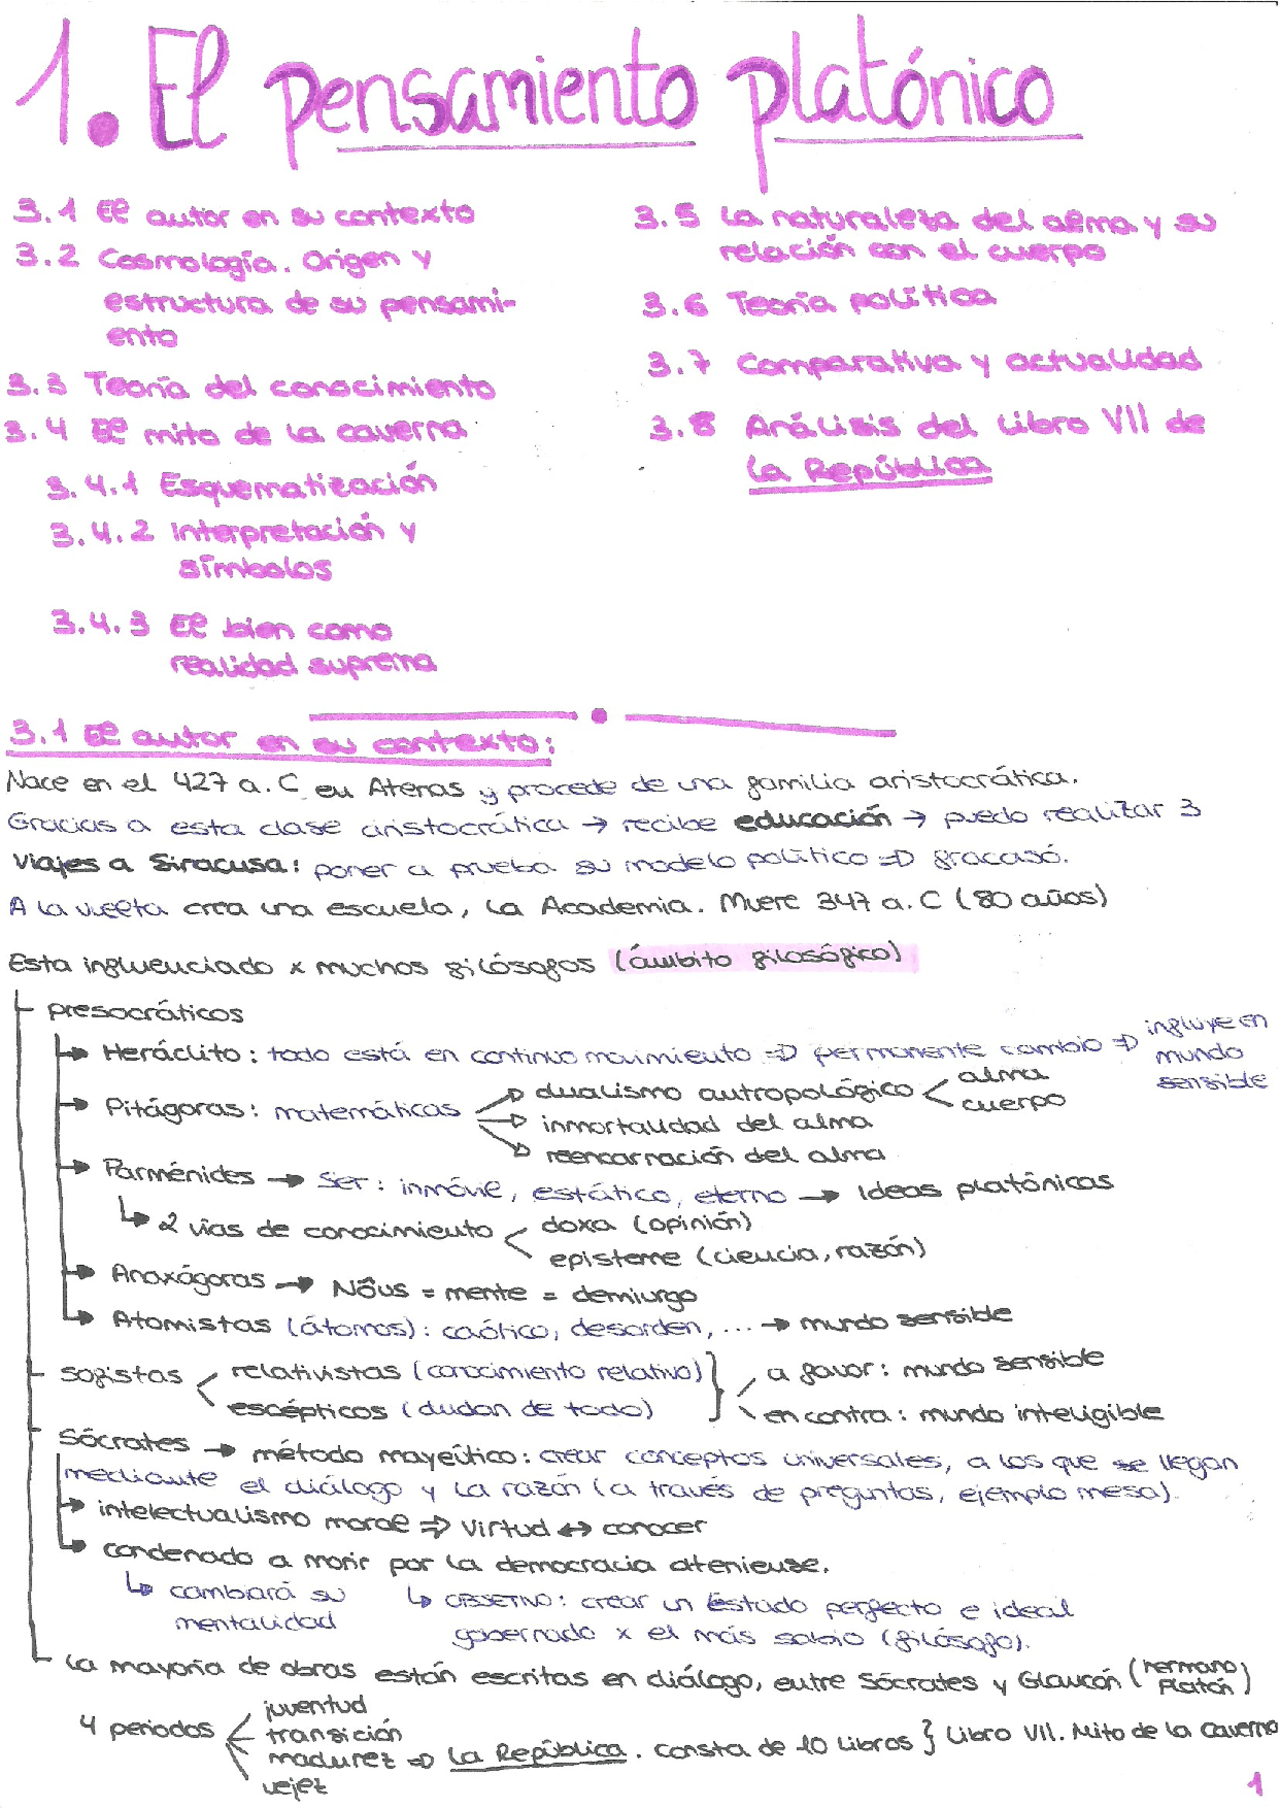 1. El pensamiento platónico
3.1 El autor en su contexto
3.2 Cosmología. Origen y
estructura de su pensami-
ento
3.3 Teoría del conocimiento
3.4 El mito de la caverna
3.4.1 Esquematización
3.4.2 Interpretación y
símbolos
3.4.3 El bien como
realidad suprema
3.5 La naturaleza del alma y su
relación con el cuerpo
3.6 Teoría política
3.7 Comparativa y actualidad
3.8 Análisis del Libro VII de
La República
3.1 El autor en su contexto:
Nace en el 427 a.C en Atenas y procede de una familia aristocrática.
Gracias a esta clase aristocrática → recibe educación → puedo realizar 3
viajes a Siracusa: poner a prueba su modelo político ⇒ fracasó.
A la vuelta crea una escuela, la Academia. Muere 347 a.C (80 años)
Esta influenciado x muchos filósofos (ámbito filosófico)
presocráticos
→ Heráclito: todo está en continuo movimiento ⇒ permanente cambio ⇒ influye en
mundo
sensible
→ Pitágoras: matemáticas → dualismo antropológico < alma
cuerpo
→ inmortalidad del alma
→ reencarnación del alma
→ Parménides → Ser: inmóvil, estático, eterno → Ideas platónicas
↳ 2 vías de conocimiento < doxa (opinión)
episteme (ciencia, razón)
→ Anaxágoras → Nôus = mente = demiurgo
→ Atomistas (átomos): caótico, desorden, ... → mundo sensible
sofistas < relativistas (conocimiento relativo) } a favor: mundo sensible
escépticos (dudan de todo) } en contra: mundo inteligible
Sócrates → método mayeútico: crear conceptos universales, a los que se llegan
mediante el diálogo y la razón (a través de preguntas, ejemplo mesa).
→ intelectualismo moral ⇒ virtud ↔ conocer
→ condenado a morir por la democracia ateniense.
↳ cambiará su
mentalidad
↳ OBJETIVO: crear un Estado perfecto e ideal
gobernado x el más sabio (filósofo).
La mayoría de obras están escritas en diálogo, entre Sócrates y Glaucón (hermano
Platón)
4 periodos < juventud
transición
madurez ⇒ La República. Consta de 10 libros } Libro VII. Mito de la Caverna
vejez
1